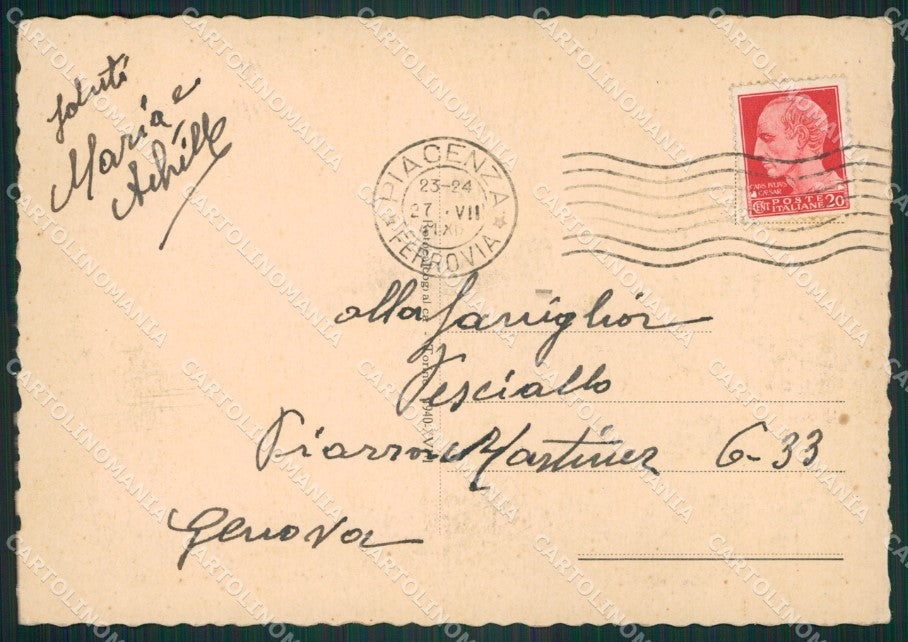 Saluti
Maria e
Achille
PIACENZA
23-24
27 VII
FERROVIA
CAIVS IVLIVS
CAESAR
CENT POSTE
ITALIANE 20
alla Famiglia
Pesciallo
Piazza Martinez 6-33
Genova
CARTOLINOMANIA